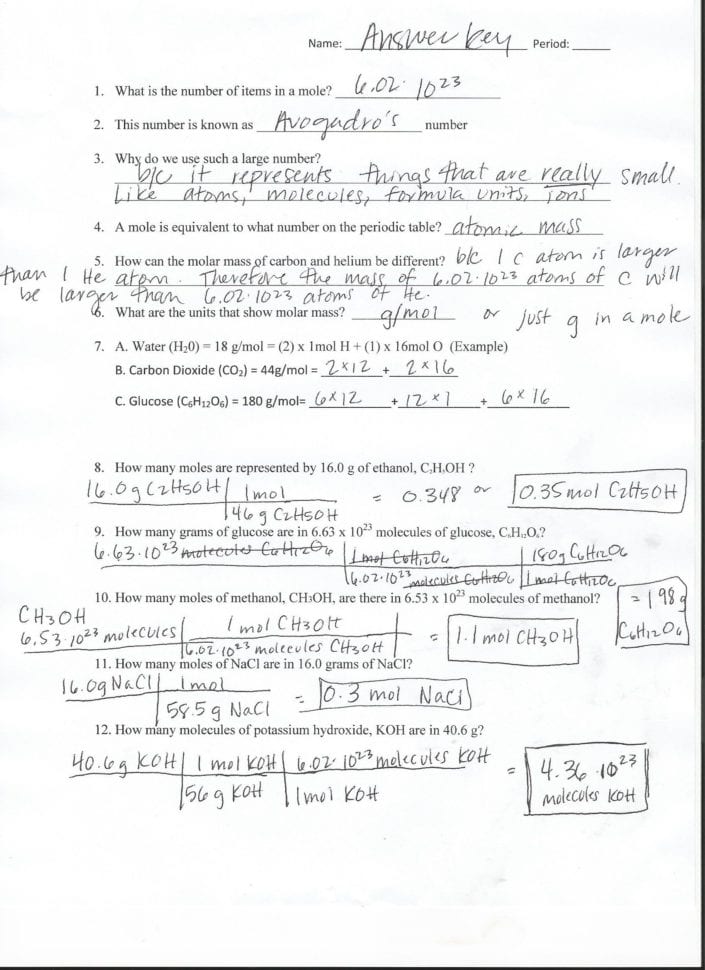 Name: Answer key Period:
1. What is the number of items in a mole? 6.02·10²³
2. This number is known as Avogadro's number
3. Why do we use such a large number?
b/c it represents things that are really small.
Like atoms, molecules, formula units, ions
4. A mole is equivalent to what number on the periodic table? atomic mass
5. How can the molar mass of carbon and helium be different? b/c 1 C atom is larger
than 1 He atom. Therefore the mass of 6.02·10²³ atoms of C will
be larger than 6.02·10²³ atoms of He.
6. What are the units that show molar mass? g/mol or just g in a mole
7. A. Water (H₂0) = 18 g/mol = (2) x 1mol H + (1) x 16mol O (Example)
B. Carbon Dioxide (CO₂) = 44g/mol = 2×12 + 2×16
C. Glucose (C₆H₁₂O₆) = 180 g/mol= 6×12 + 12×1 + 6×16
8. How many moles are represented by 16.0 g of ethanol, C₂H₅OH ?
16.0g C2H5OH | 1mol = 0.348 or 0.35 mol C2H5OH
46 g C2H5OH
9. How many grams of glucose are in 6.63 x 10²³ molecules of glucose, C₆H₁₂O₆?
6.63·10²³ molecules C6H12O6 | 1 mol C6H12O6 | 180g C6H12O6
6.02·10²³ molecules C6H12O6 | 1 mol C6H12O6
= 198g
C6H12O6
10. How many moles of methanol, CH₃OH, are there in 6.53 x 10²³ molecules of methanol?
CH3OH
6.53·10²³ molecules | 1 mol CH3OH = 1.1 mol CH3OH
6.02·10²³ molecules CH3OH
11. How many moles of NaCl are in 16.0 grams of NaCl?
16.0g NaCl | 1mol = 0.3 mol NaCl
58.5 g NaCl
12. How many molecules of potassium hydroxide, KOH are in 40.6 g?
40.6g KOH | 1 mol KOH | 6.02·10²³ molecules KOH = 4.36·10²³
56 g KOH | 1mol KOH molecules KOH